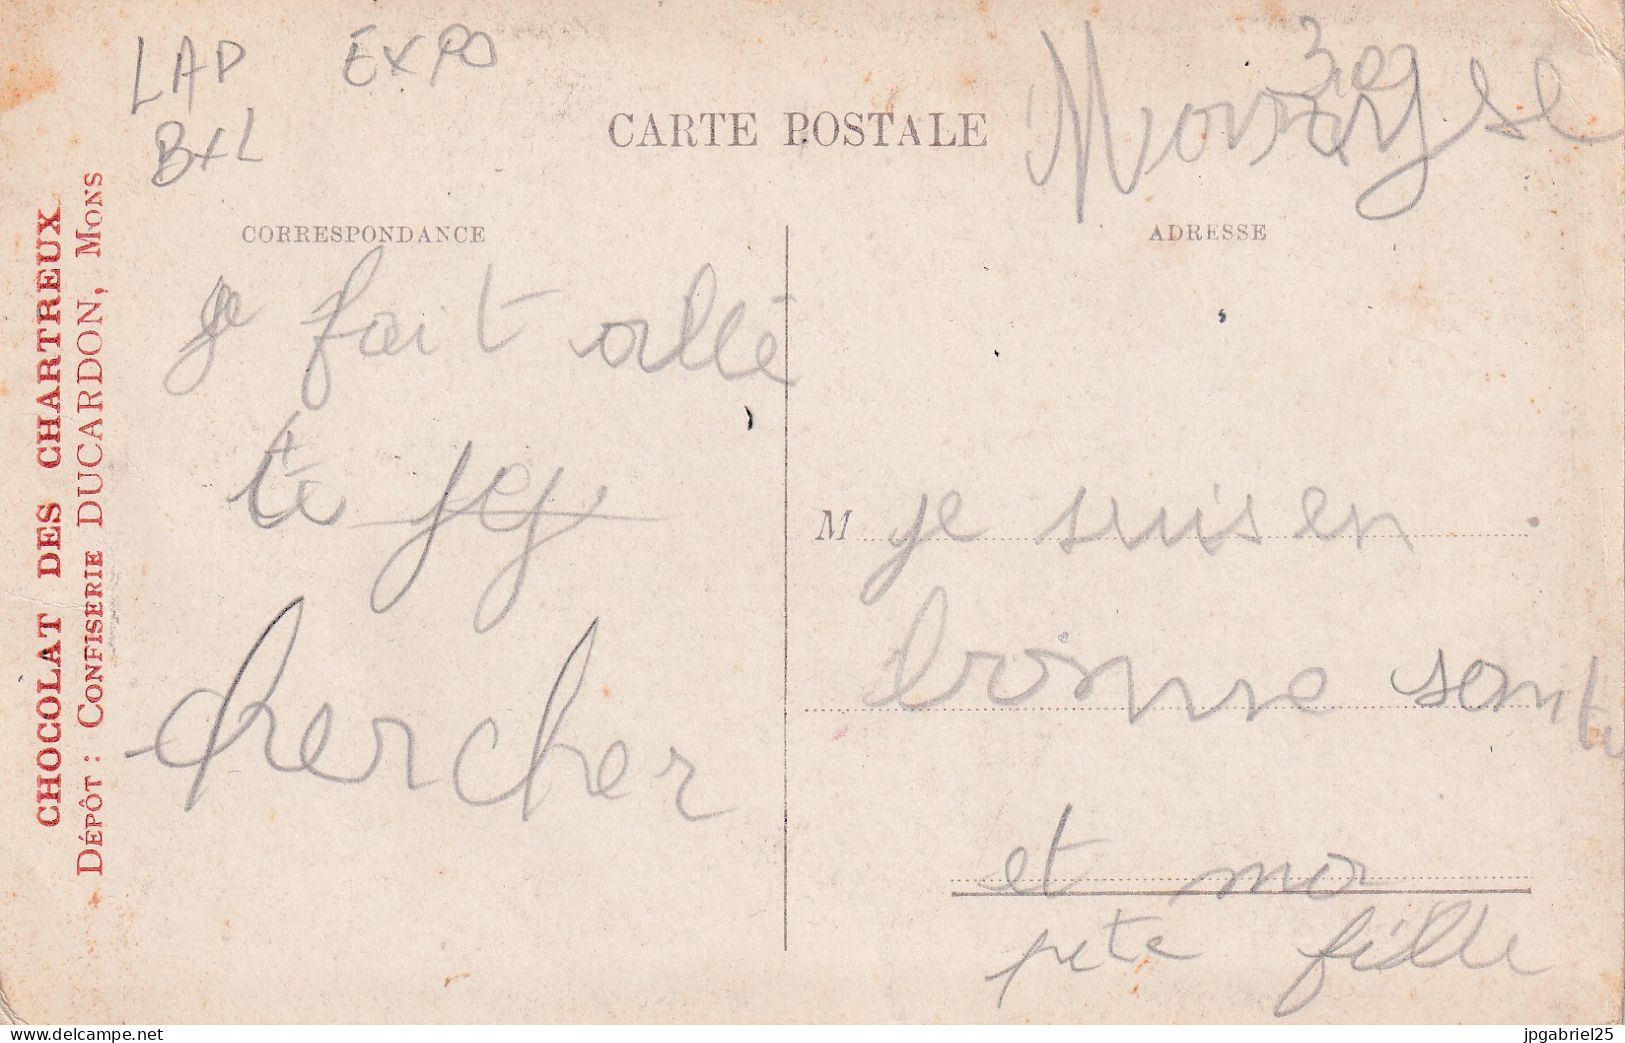 LAP EXPO
BXL
CARTE POSTALE
CORRESPONDANCE
ADRESSE
CHOCOLAT DES CHARTREUX
DÉPÔT : CONFISERIE DUCARDON, MONS
je fait allé
te
chercher
M je suis en
bonne sante
et ma
pete fille
www.delcampe.net
jpgabriel25